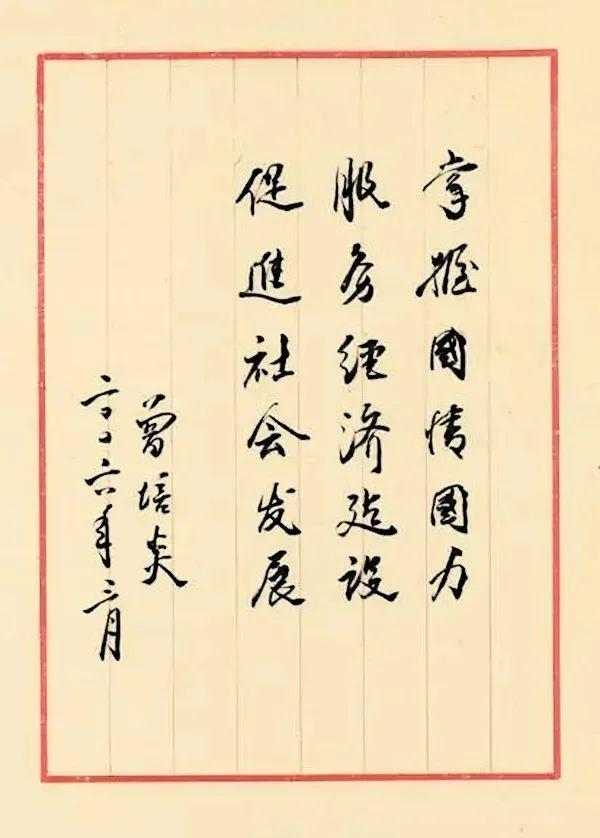 掌握國情國力
服务經济建設
促進社会发展
曾培炎
二〇〇六年三月